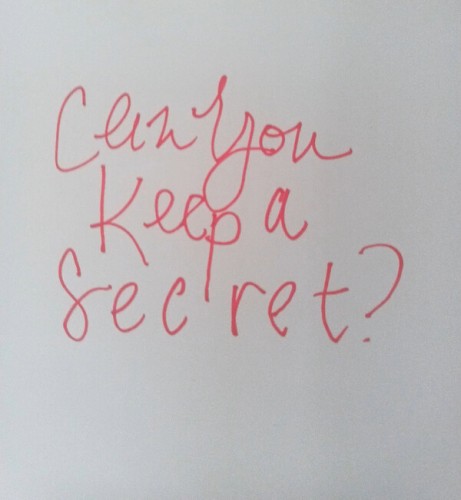 Can You
Keep a
Secret?